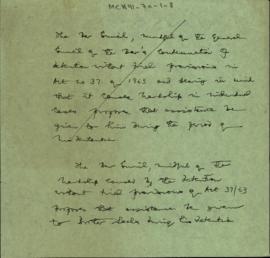 MCH91-72-1-8
The Bar Council, mindful of the General
Council of the Bar's condemnation of
detention without trial provisions in
Act no 37 of 1963 and bearing in mind
that it causes hardship in individual
cases proposes that assistance be
given to him during the period of
his detention
The Bar Council, mindful of the
hardship caused by the detention
without trial provisions of Act 37/63
proposes that assistance be given
to during his detention